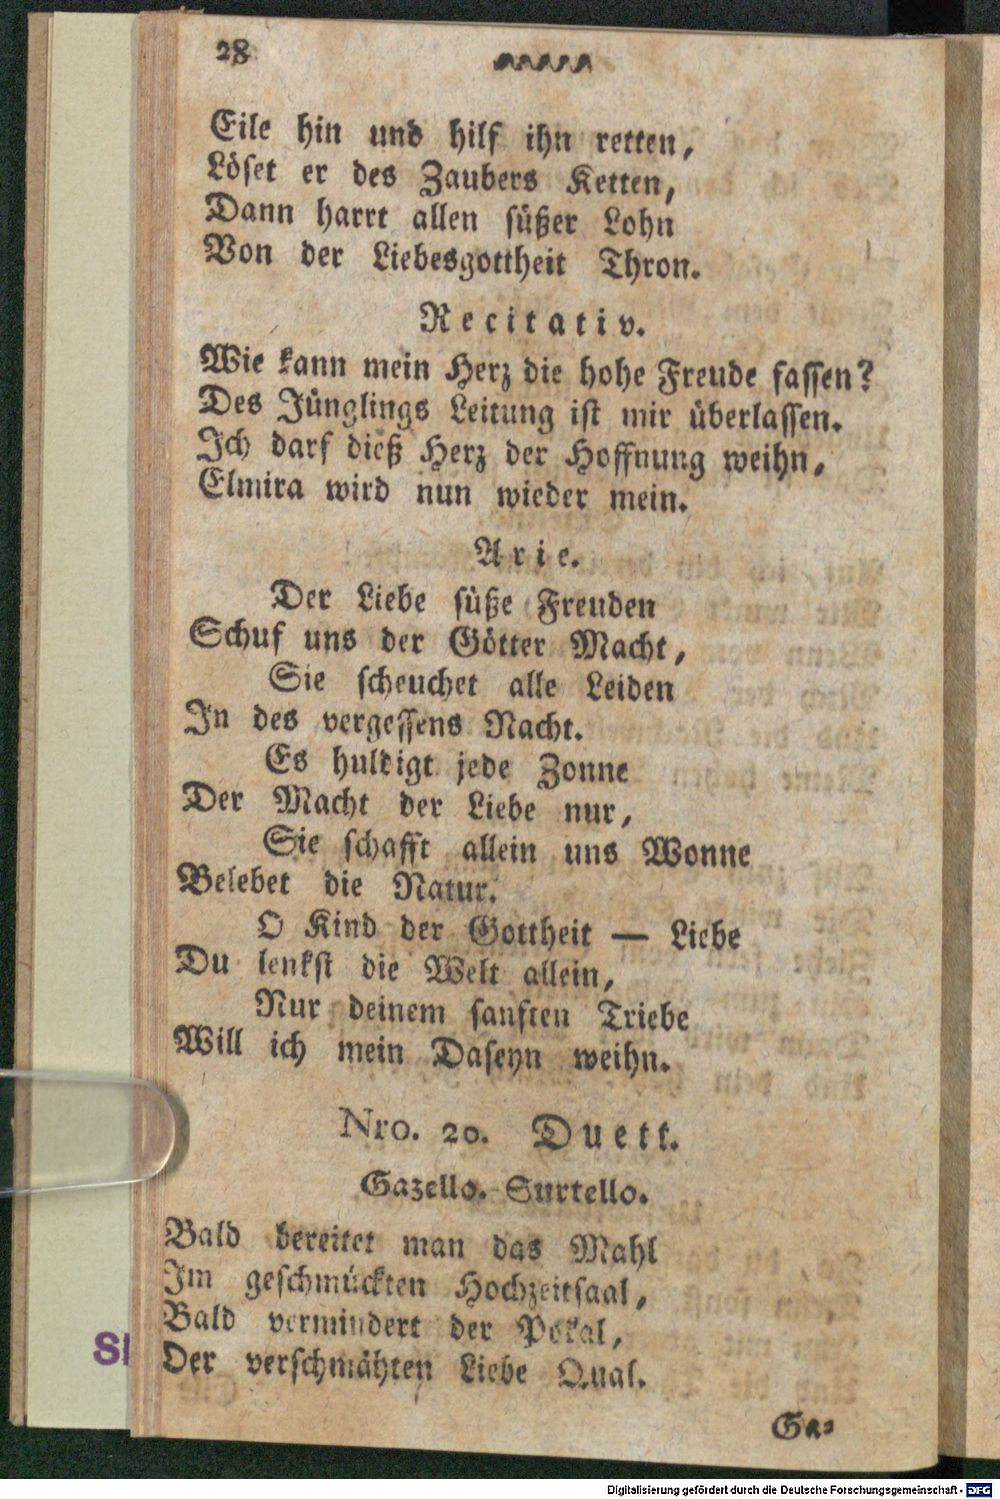 28
Eile hin und hilf ihn retten,
Löset er des Zaubers Ketten,
Dann harrt allen süßer Lohn
Von der Liebesgottheit Thron.
Recitativ.
Wie kann mein Herz die hohe Freude fassen?
Des Jünglings Leitung ist mir überlassen.
Ich darf dieß Herz der Hoffnung weihn,
Elmira wird nun wieder mein.
Arie.
Der Liebe süße Freuden
Schuf uns der Götter Macht,
Sie scheuchet alle Leiden
In des vergessens Nacht.
Es huldigt jede Zonne
Der Macht der Liebe nur,
Sie schafft allein uns Wonne
Belebet die Natur.
O Kind der Gottheit — Liebe
Du lenkst die Welt allein,
Nur deinem sanften Triebe
Will ich mein Daseyn weihn.
Nro. 20. Duett.
Gazello. Surtello.
Bald bereitet man das Mahl
Im geschmückten Hochzeitsaal,
Bald vermindert der Pokal,
Der verschmähten Liebe Qual.
Ga=
Digitalisierung gefördert durch die Deutsche Forschungsgemeinschaft - DFG